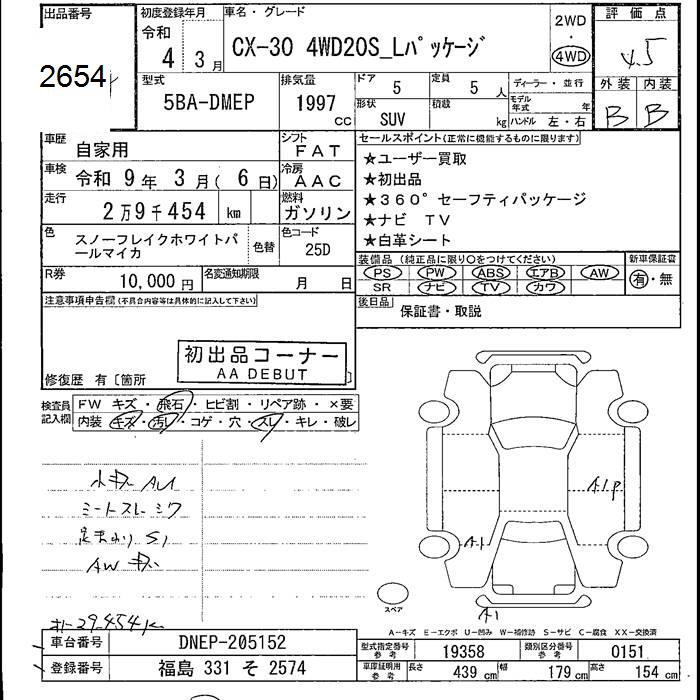 出品番号 初度登録年月 車名・グレード 評価点
2654
令和 4 3月
CX-30 4WD20S_Lパッケージ
2WD
・
4WD
4.5
外装 内装
B B
型式 5BA-DMEP
排気量 1997 cc
ドア 5 定員 5 人
形状 SUV 積載 kg
ディーラー・並行
モデル年式 年
ハンドル 左・右
車歴 自家用
シフト FAT
車検 令和 9年 3月(6日)
冷房 AAC
走行 2万9千454 km
燃料 ガソリン
色 スノーフレイクホワイトパールマイカ 色替
色コード 25D
R券 10,000円
名変通知期限 月 日
セールスポイント(正常に機能するものに限ります)
★ユーザー買取
★初出品
★360°セーフティパッケージ
★ナビ TV
★白革シート
装備品(純正品に限り○をつけてください) 新車保証書
PS PW ABS エアB AW
SR ナビ TV カワ
有・無
後日品 保証書・取説
注意事項申告欄(不具合内容等は具体的に記入して下さい)
初出品コーナー
AA DEBUT
修復歴 有〔箇所 〕
検査員記入欄
FW キズ・飛石・ヒビ割・リペア跡・×要
内装 キズ・汚レ・コゲ・穴・スレ・キレ・破レ
小キズ AU
シートスレ シワ
足まわり S1
AW キズ
29,454k
A1P
A1
A1
スペア
A-キズ E-エクボ U-凹み W-補修跡 S-サビ C-腐食 XX-交換済
車台番号 DNEP-205152
登録番号 福島 331 そ 2574
型式指定番号 参考 19358
類別区分番号 参考 0151
車庫証明用 参考 長さ 439 cm 幅 179 cm 高さ 154 cm